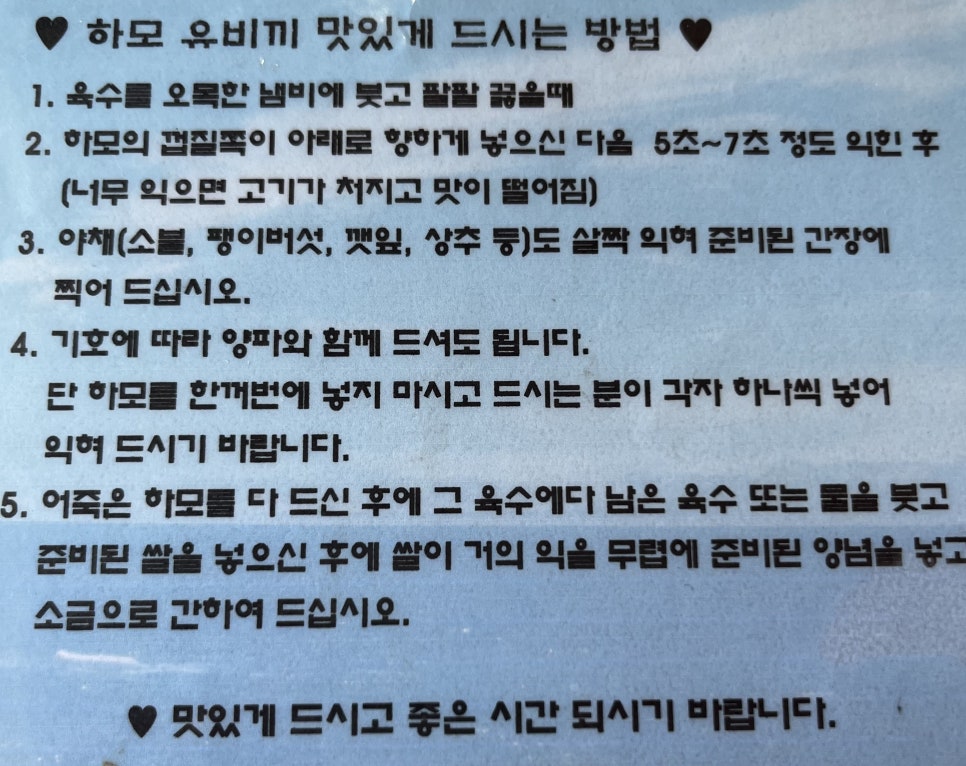 ♥ 하모 유비끼 맛있게 드시는 방법 ♥
1. 육수를 오목한 냄비에 붓고 팔팔 끓을때
2. 하모의 껍질쪽이 아래로 향하게 넣으신 다음 5초~7초 정도 익힌 후
(너무 익으면 고기가 처지고 맛이 떨어짐)
3. 야채(소불, 팽이버섯, 깻잎, 상추 등)도 살짝 익혀 준비된 간장에
찍어 드십시오.
4. 기호에 따라 양파와 함께 드셔도 됩니다.
단 하모를 한꺼번에 넣지 마시고 드시는 분이 각자 하나씩 넣어
익혀 드시기 바랍니다.
5. 어죽은 하모를 다 드신 후에 그 육수에다 남은 육수 또는 물을 붓고
준비된 쌀을 넣으신 후에 쌀이 거의 익을 무렵에 준비된 양념을 넣고
소금으로 간하여 드십시오.
♥ 맛있게 드시고 좋은 시간 되시기 바랍니다.